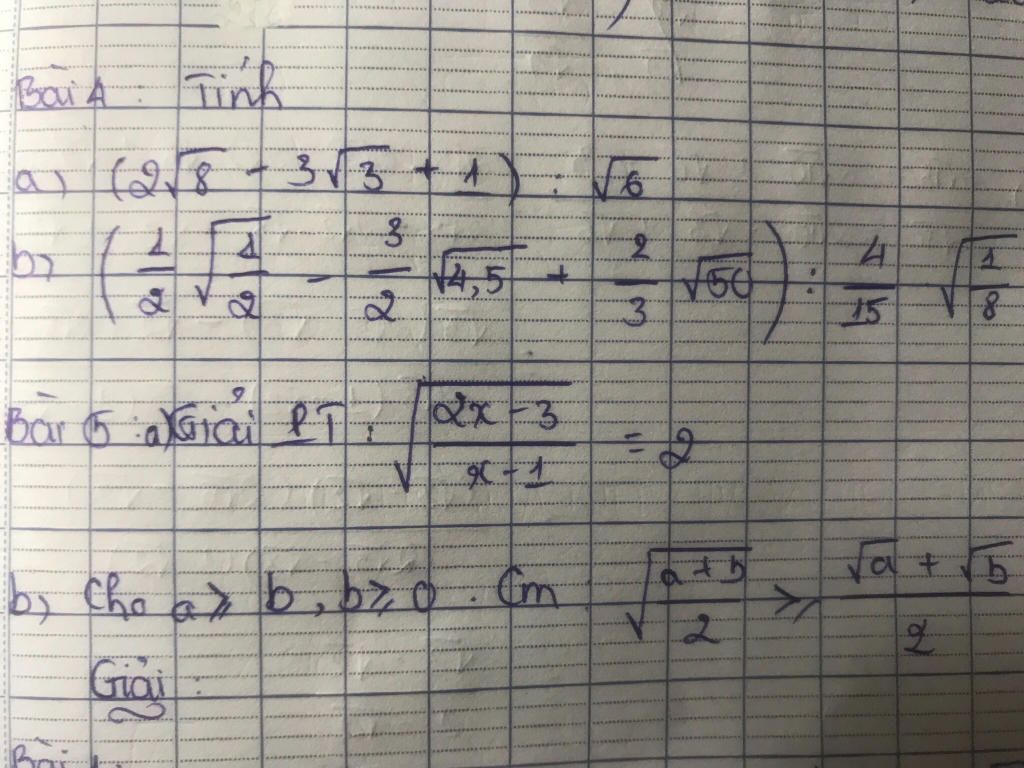 Bài 4 : Tính
a) (2√8 - 3√3 + 1) : √6
b) (1/2 √(1/2) - 3/2 √4,5 + 2/3 √50) : 4/15 √(1/8)
Bài 5 : a) Giải PT : √((2x-3)/(x-1)) = 2
b) Cho a ≥ b, b ≥ 0 . Cm : √((a+b)/2) ≥ (√a + √b)/2
Giải :